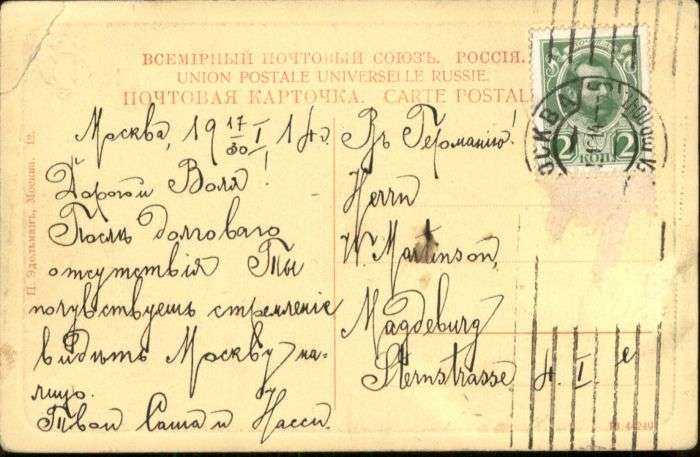 ВСЕМІРНЫЙ ПОЧТОВЫЙ СОЮЗЪ. РОССІЯ.
UNION POSTALE UNIVERSELLE RUSSIE.
ПОЧТОВАЯ КАРТОЧКА. CARTE POSTALE
Москва, 19 17/30 I 14 г.
Дорогой Воля!
Послѣ долговаго
отсутствія Ты
почувствуешь стремленіе
видѣть Москву на-
лицо.
Твои Саша и Насси.
Въ Германію!
Herrn
W. Martinson,
Magdeburg
Sternstrasse 4. I. e
2 КОП 2
МОСКВА
Москва. 12.
44249